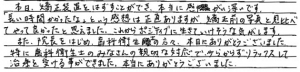 本日、矯正装置をはずすことができ、本当に感慨が深いです。
長い時間がかかったな、という感想は正直ありますが、矯正前の写真と見比べ
てやって良かったと思えました。これからポジティブに生きていけそうな気がします。
また、院長をはじめ、歯科衛生士の方々、本当にありがとうございました。
特に歯科衛生士のみなさんの親切な対応でいつもリラックスして
治療を受ける事ができました。本当にありがとうございました。